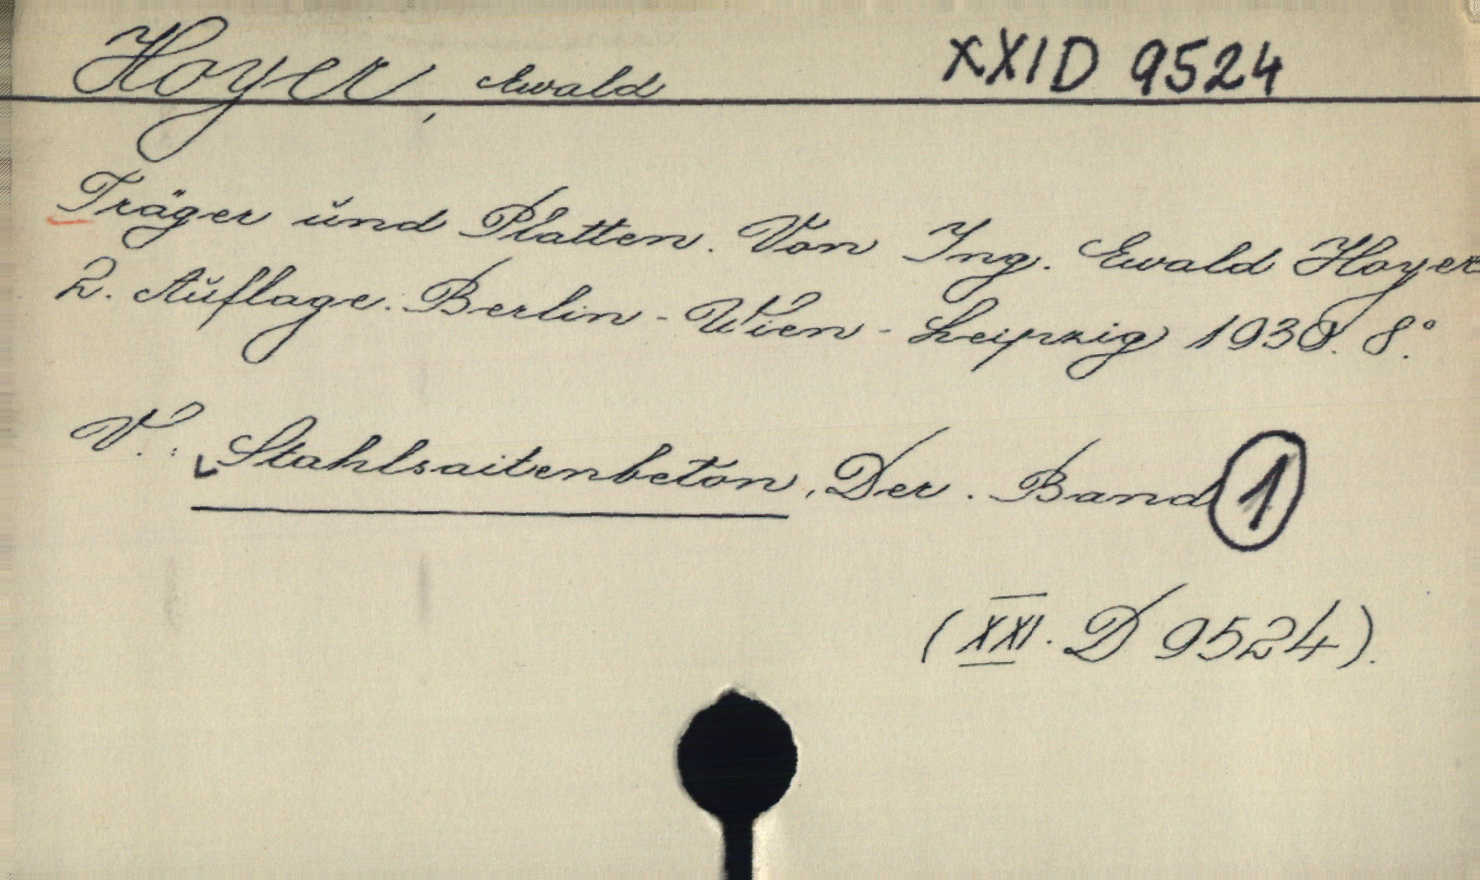 Hoyer, Ewald XXI D 9524
Träger und Platten. Von Ing. Ewald Hoyer
2. Auflage. Berlin - Wien - Leipzig 1939. 8°.
V.: Stahlsaitenbeton, Der. Band 1
(XXI. D 9524).